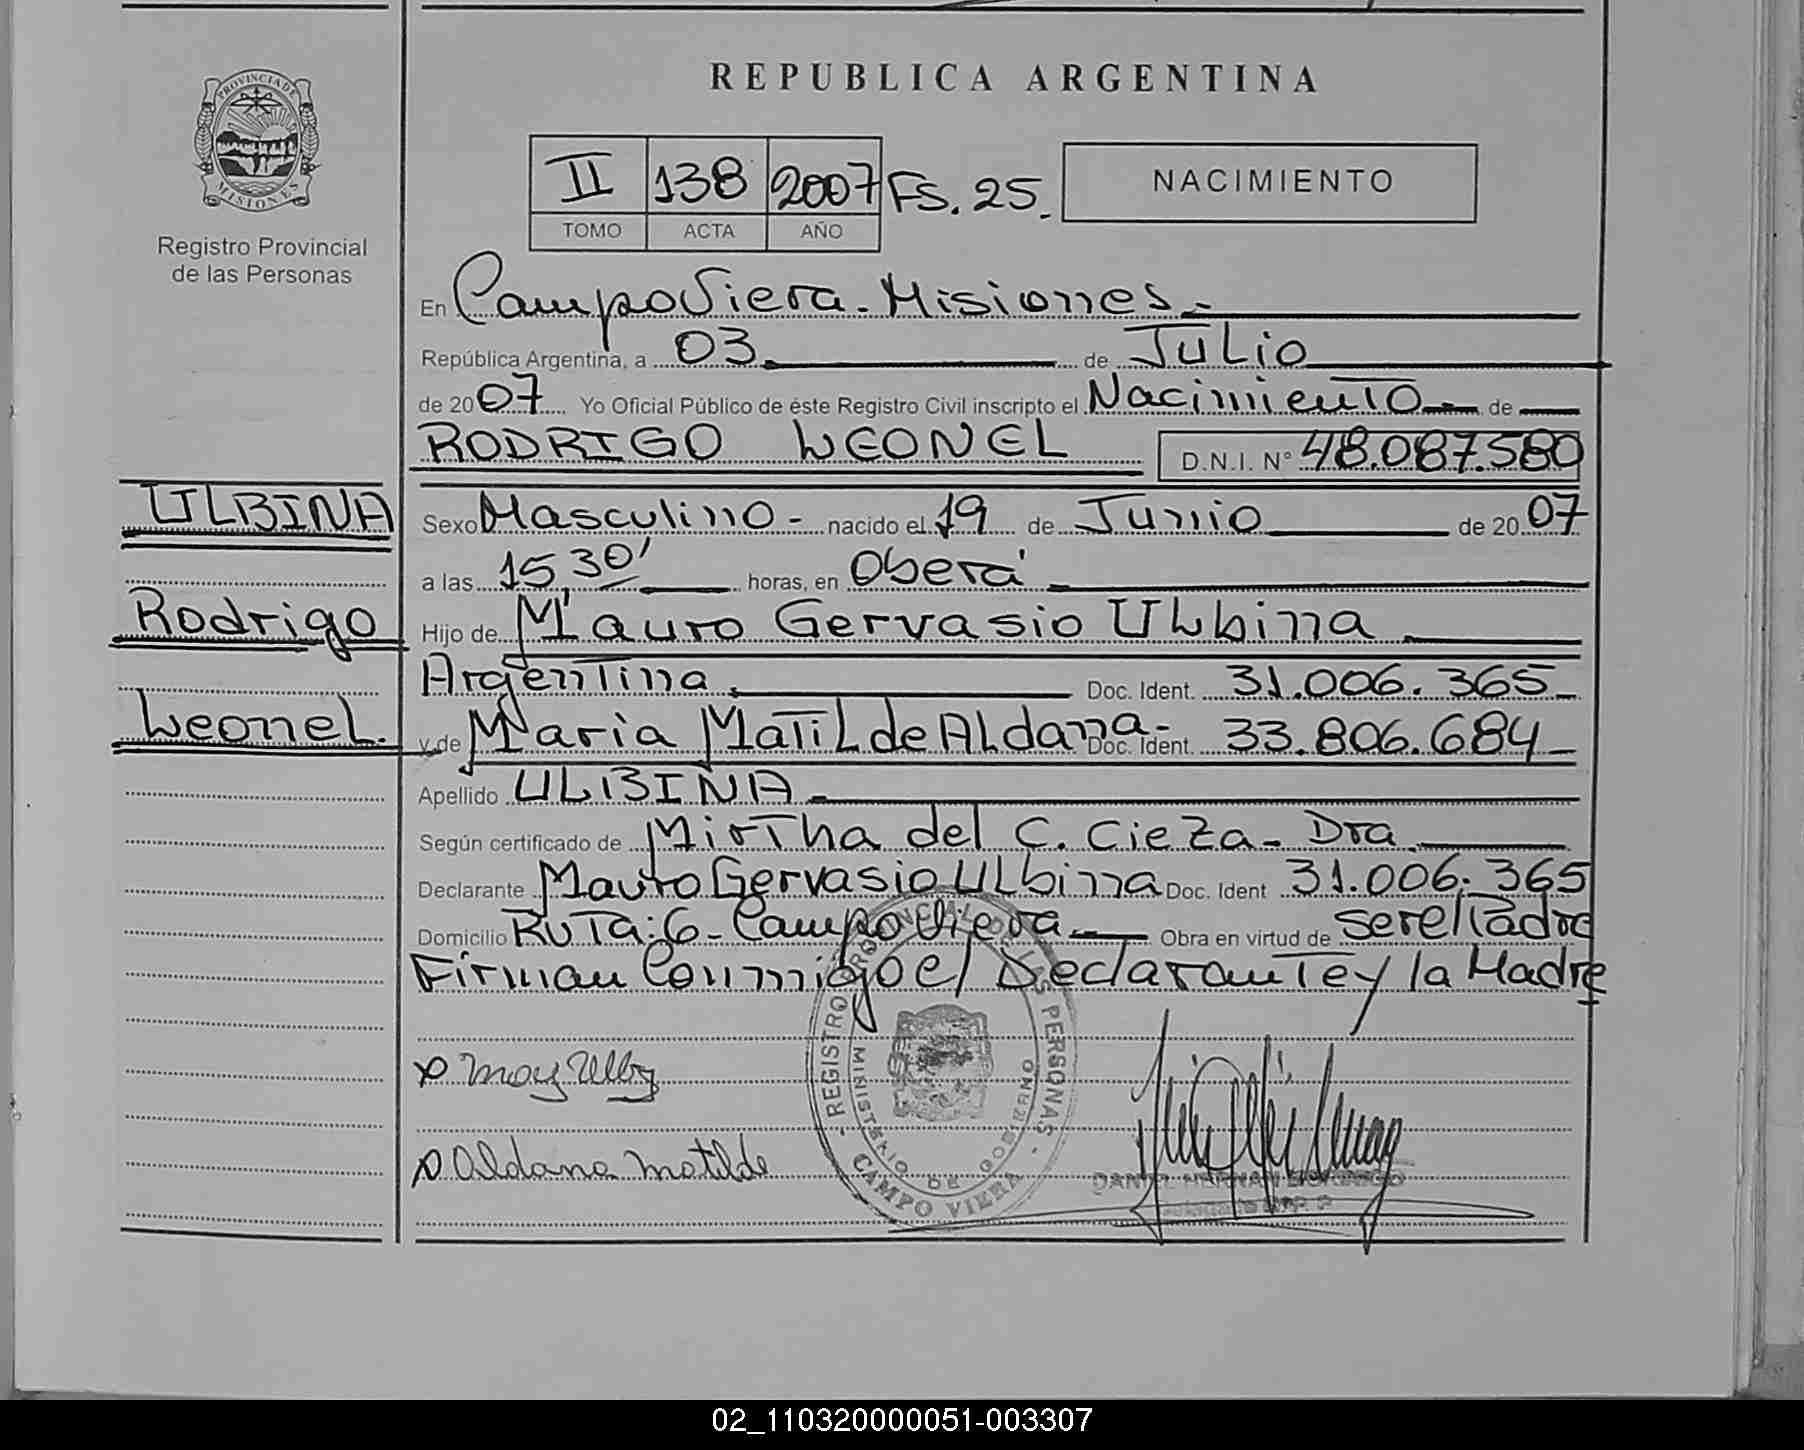 REPUBLICA ARGENTINA
PROVINCIA DE MISIONES
Registro Provincial
de las Personas
II 138 2007 FS. 25.
TOMO ACTA AÑO
NACIMIENTO
En Campo Viera - Misiones -
República Argentina, a 03 de Julio
de 2007 Yo Oficial Público de éste Registro Civil inscripto el Nacimiento de
RODRIGO LEONEL D.N.I. N° 48.087.580
ULBINA
Rodrigo
Leonel.
Sexo Masculino - nacido el 19 de Junio de 2007
a las 15,30' horas, en Oberá
Hijo de Mauro Gervasio Ulbina
Argentina Doc. Ident. 31.006.365
y de Maria Matilde Aldana - Doc. Ident. 33.806.684
Apellido ULBINA
Según certificado de Mirtha del C. Cieza - Dra.
Declarante Mauro Gervasio Ulbinna Doc. Ident 31.006.365
Domicilio Ruta: 6 - Campo Viera Obra en virtud de ser el Padre
Firman Conmigo el Declarante y la Madre
Aldana Matilde
REGISTRO PROVINCIAL DE LAS PERSONAS
MINISTERIO DE GOBIERNO
CAMPO VIERA
DANIEL HERNAN
02_110320000051-003307